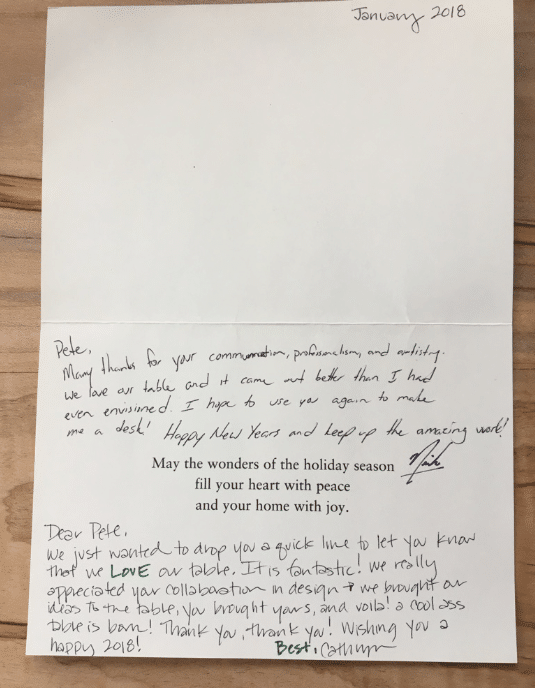 January 2018
Pete,
Many thanks for your communication, professionalism, and artistry.
We love our table and it came out better than I had
even envisioned. I hope to use you again to make
me a desk! Happy New Years and keep up the amazing work!
May the wonders of the holiday season
fill your heart with peace
and your home with joy.
Dear Pete,
We just wanted to drop you a quick line to let you know
that we LOVE our table. It is fantastic! We really
appreciated your collaboration in design + we brought our
ideas to the table, you brought yours, and voila! a cool ass
table is born! Thank you, thank you! Wishing you a
happy 2018! Best,